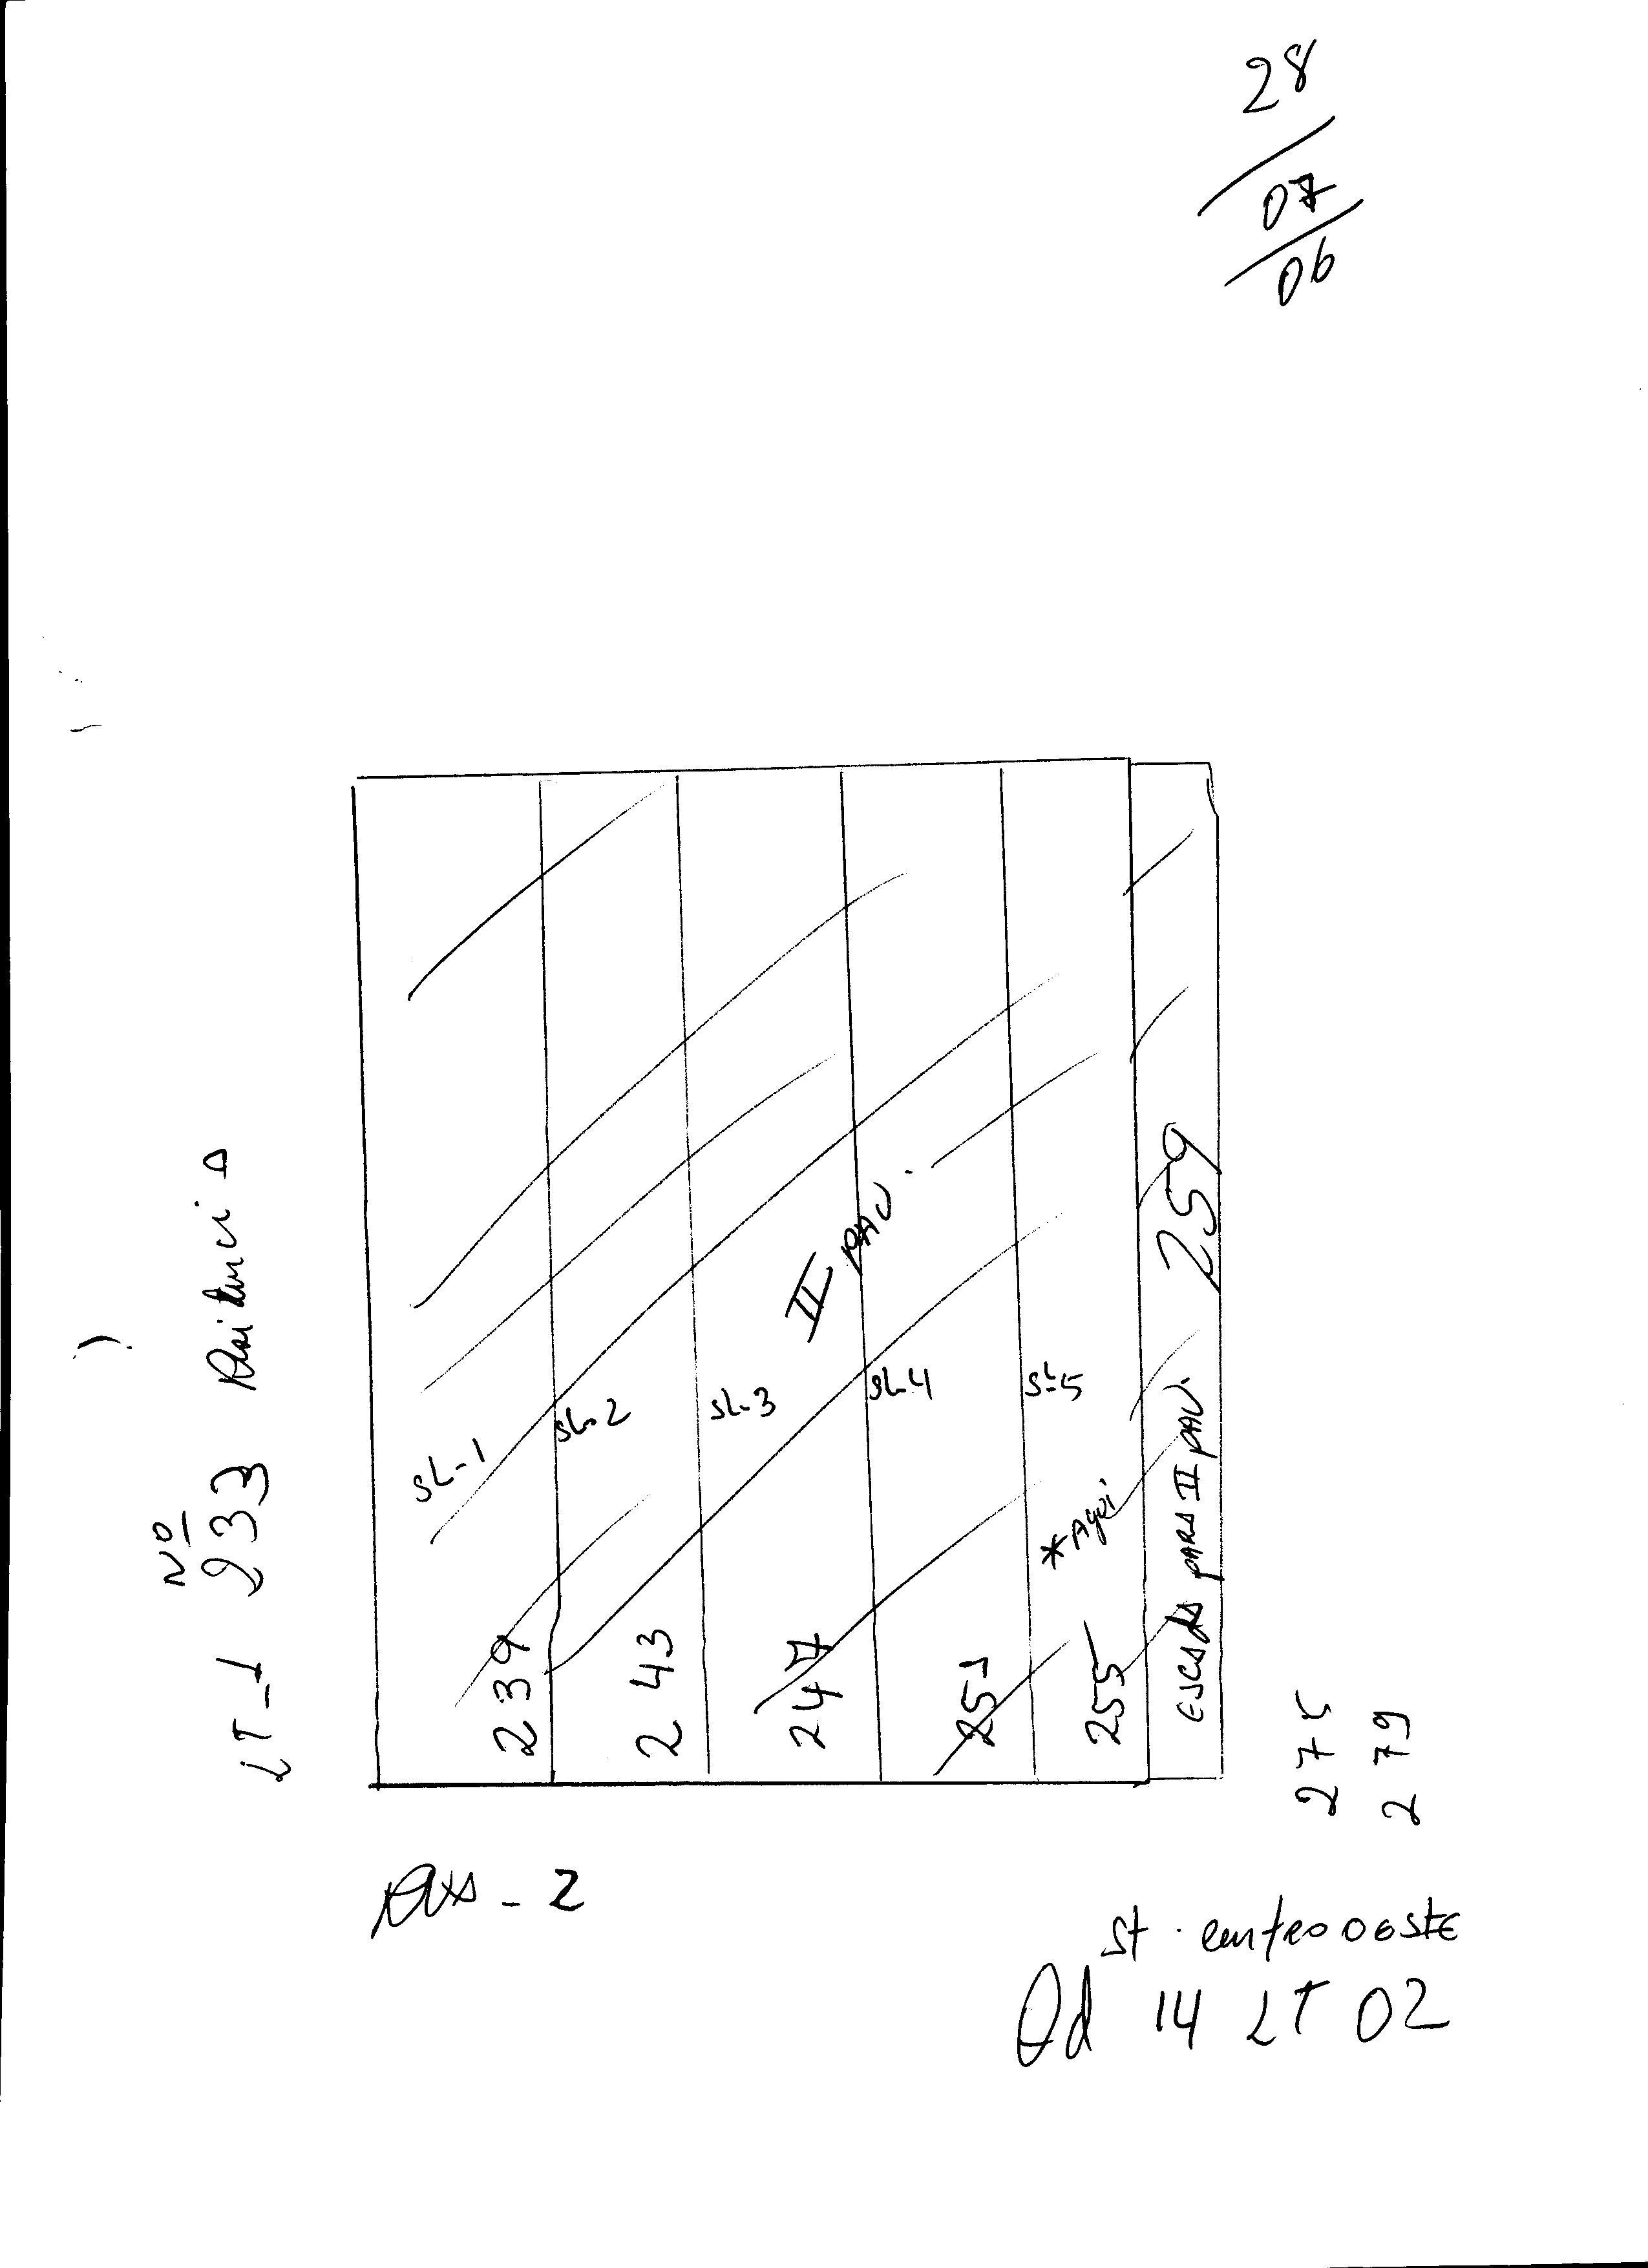 28
/
07
/
06
Nº
LT-1 233
II PAV.
SL-1
SL-2
SL-3
SL-4
SL-5
*Aqui
239
243
247
251
255
ESCADA PARA II PAV. 259
275
279
- 2
St. centro oeste
Qd 14 LT 02